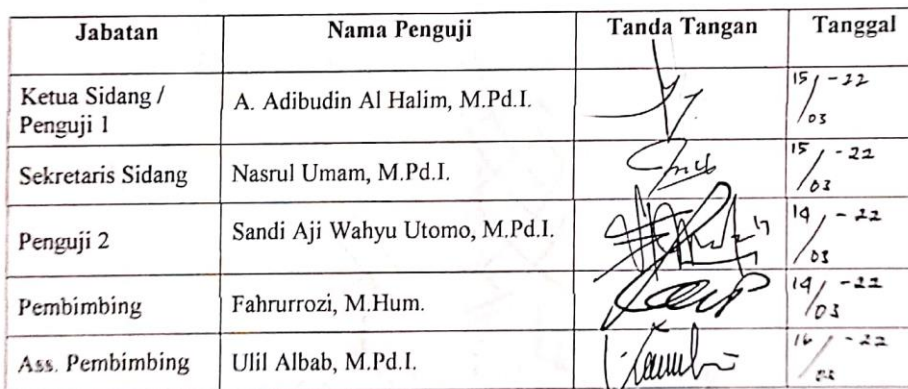 Jabatan Nama Penguji Tanda Tangan Tanggal
Ketua Sidang / A. Adibudin Al Halim, M.Pd.I. 15/03-22
Penguji 1
Sekretaris Sidang Nasrul Umam, M.Pd.I. 15/03-22
Penguji 2 Sandi Aji Wahyu Utomo, M.Pd.I. 14/03-22
Pembimbing Fahrurrozi, M.Hum. 14/03-22
Ass. Pembimbing Ulil Albab, M.Pd.I. 16/ -22